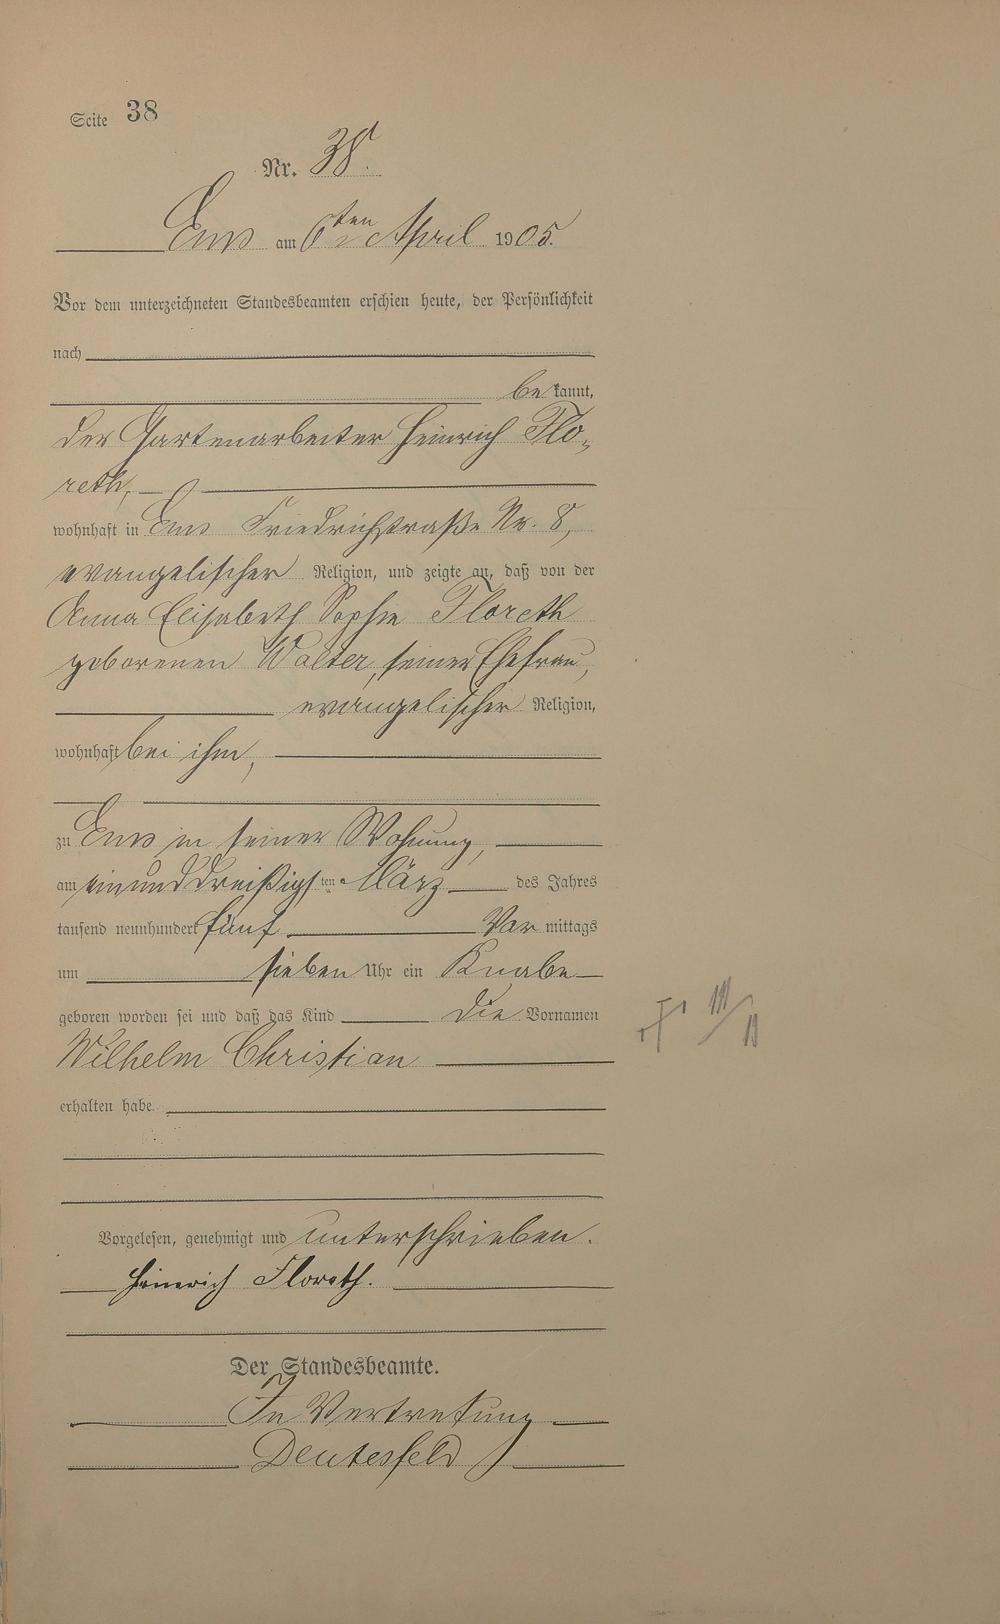 Seite 38
Nr. 38.
Ems am 6ten April 1905.
Vor dem unterzeichneten Standesbeamten erschien heute, der Persönlichkeit
nach
bekannt,
der Gartenarbeiter Heinrich Flo-
reth,
wohnhaft in Ems Friedrichstraße Nr. 8,
evangelischer Religion, und zeigte an, daß von der
Anna Elisabeth Sophie Floreth
geborenen Walter, seiner Ehefrau,
evangelischer Religion,
wohnhaft bei ihm,
zu Ems in seiner Wohnung,
am einunddreißigsten März des Jahres
tausend neunhundert fünf Vor mittags
um sieben Uhr ein Knabe
geboren worden sei und daß das Kind die Vornamen
Wilhelm Christian
erhalten habe.
Vorgelesen, genehmigt und unterschrieben.
Heinrich Floreth.
Der Standesbeamte.
In Vertretung
Deutesfeld